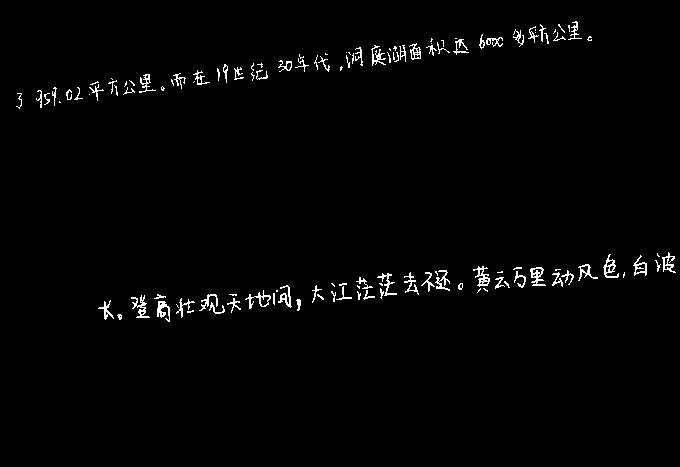 3 959.02平方公里。而在19世纪30年代,洞庭湖面积达6000多平方公里。
长。登高壮观天地间,大江茫茫去不还。黄云万里动风色,白波